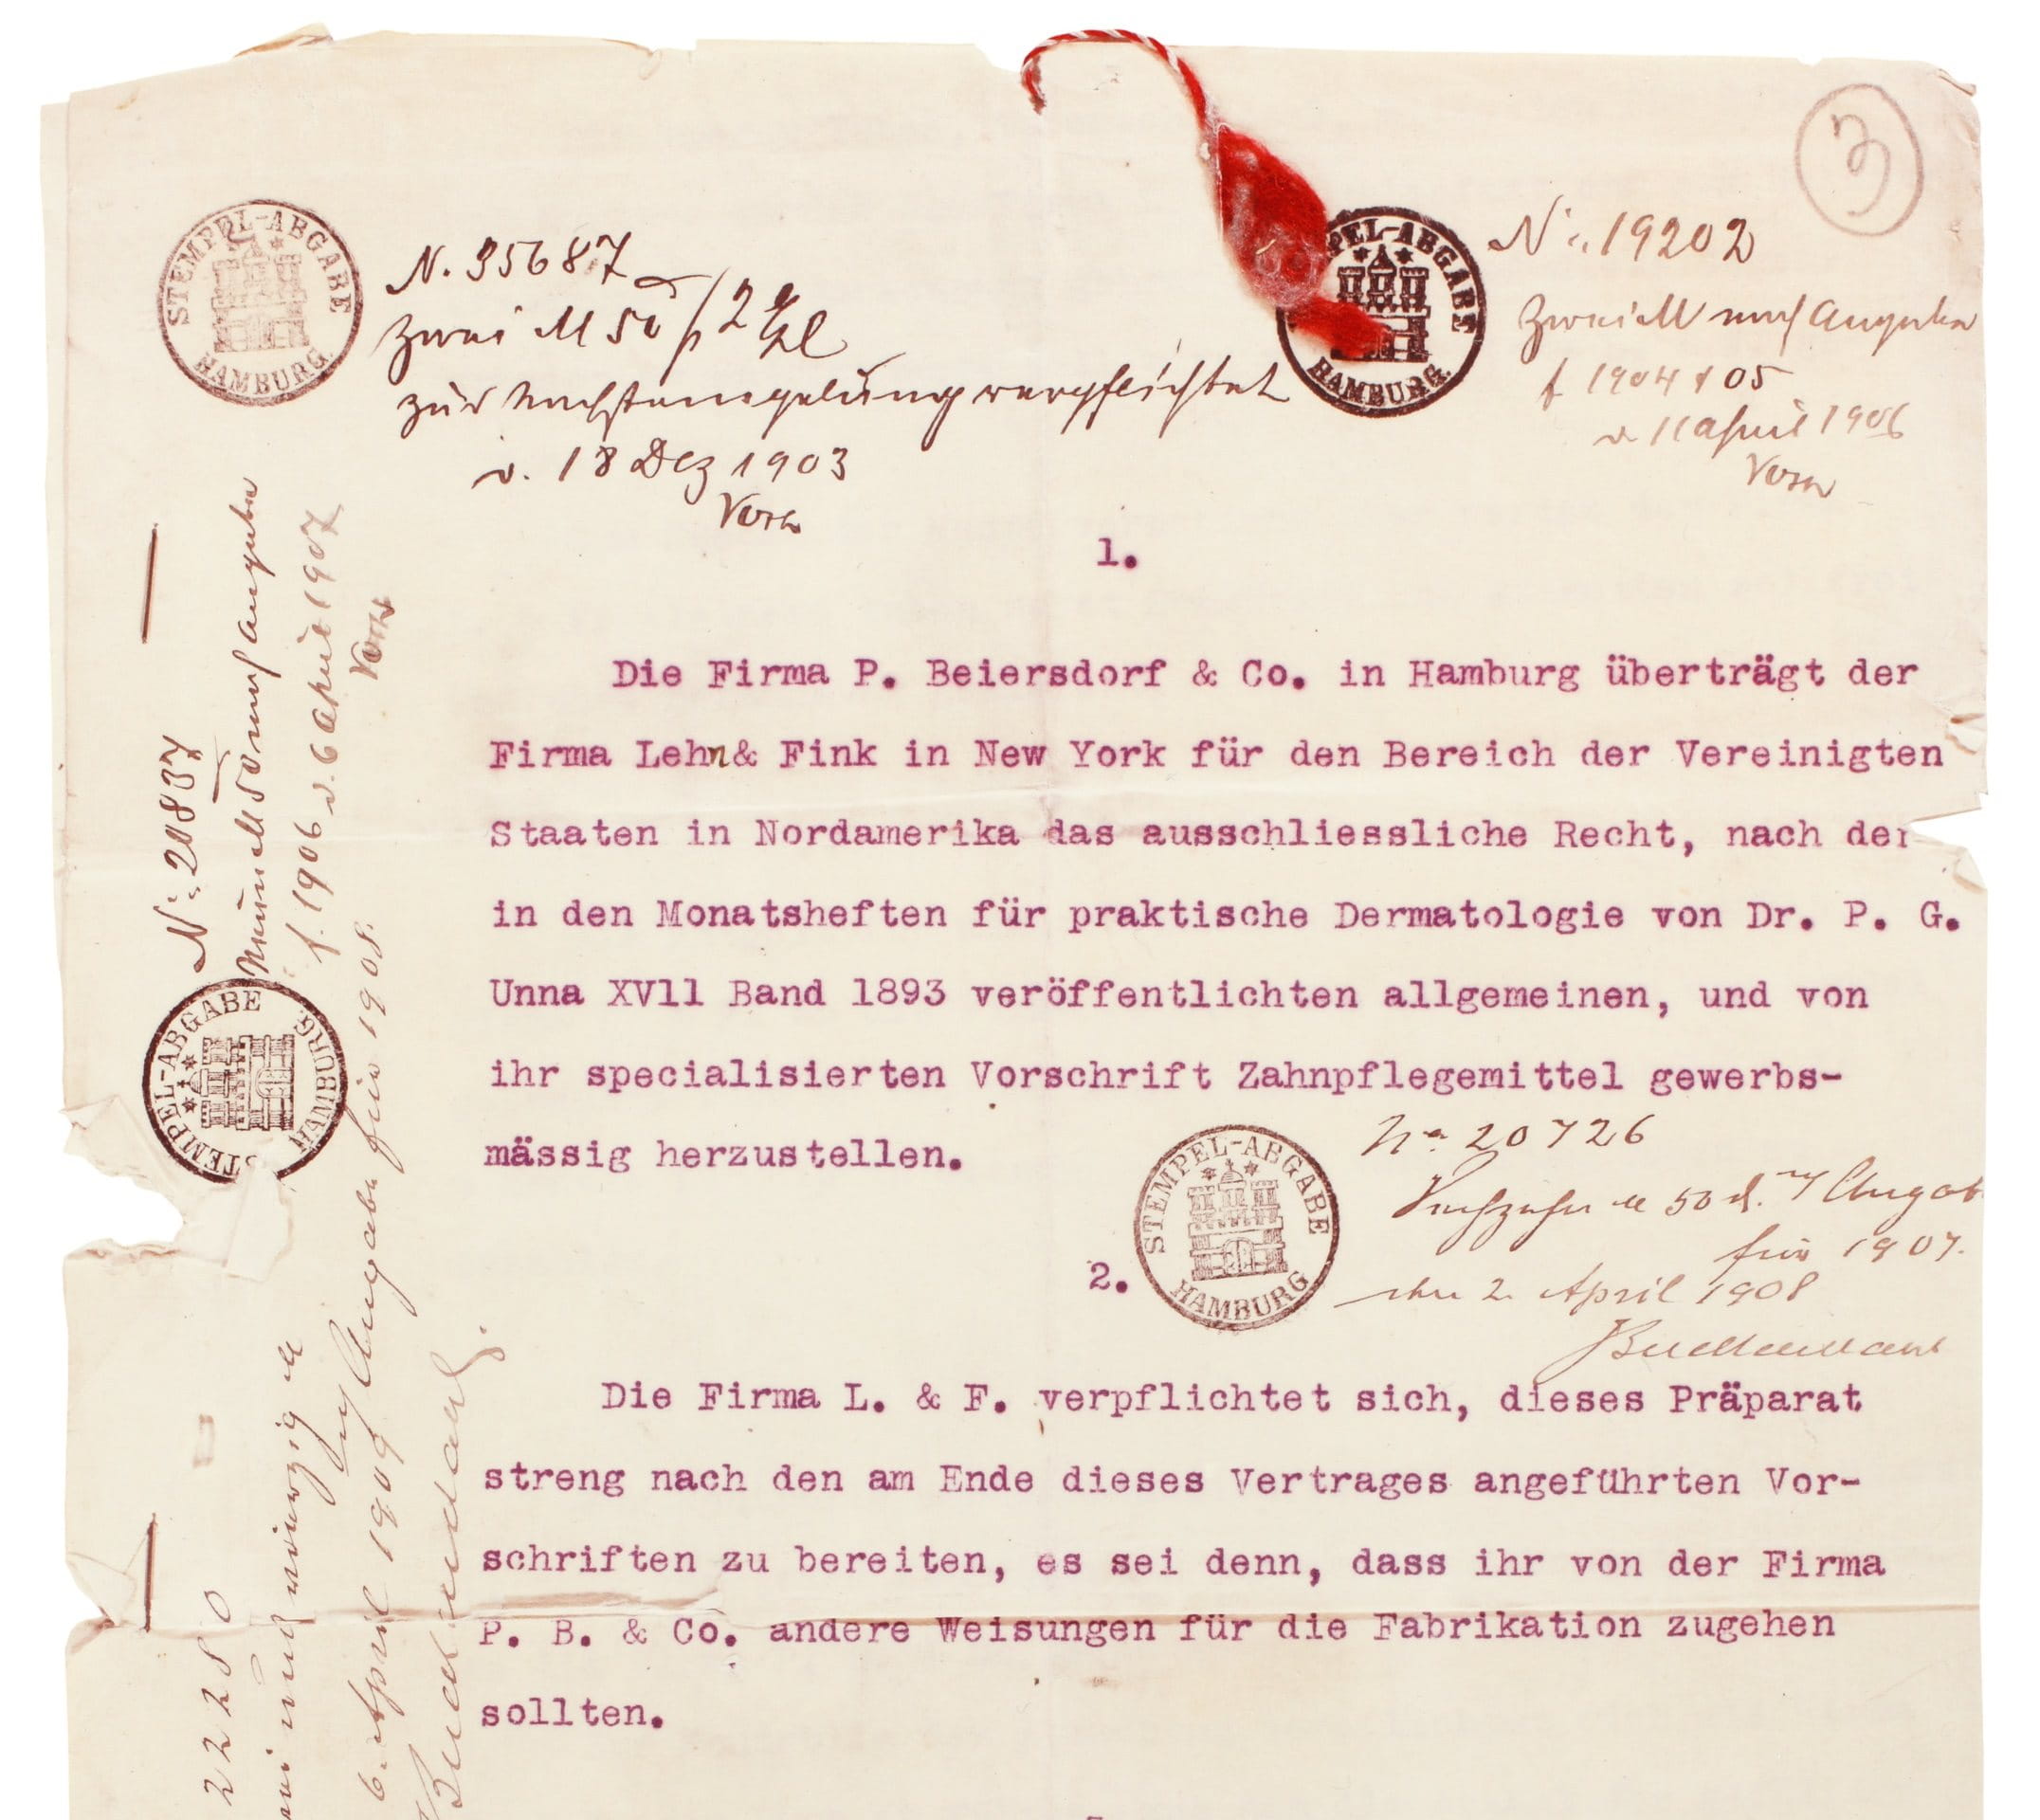 3
STEMPEL-ABGABE
HAMBURG.
N. 35687
zwei M 50 / 2 Expl
zur Nachstempelung verpflichtet
d. 18 Dez 1903
PEL-ABGABE
HAMBURG.
No. 19202
zwei M nach Angabe
f 1904 & 05
d 11 April 1906
1.
Die Firma P. Beiersdorf & Co. in Hamburg überträgt der
Firma Lehn & Fink in New York für den Bereich der Vereinigten
Staaten in Nordamerika das ausschliessliche Recht, nach der
in den Monatsheften für praktische Dermatologie von Dr. P. G.
Unna XVll Band 1893 veröffentlichten allgemeinen, und von
ihr specialisierten Vorschrift Zahnpflegemittel gewerbs-
mässig herzustellen.
STEMPEL-ABGABE
HAMBURG
No 20726
M 50 Angabe
für 1907.
den 2 April 1908
2.
Die Firma L. & F. verpflichtet sich, dieses Präparat
streng nach den am Ende dieses Vertrages angeführten Vor-
schriften zu bereiten, es sei denn, dass ihr von der Firma
P. B. & Co. andere Weisungen für die Fabrikation zugehen
sollten.
STEMPEL-ABGABE
HAMBURG.
No. 20837
M 50 nach Angabe
f. 1906 d. 6 April 1907
22280
und vierzig M
Angabe für 1908.
6. April 1909